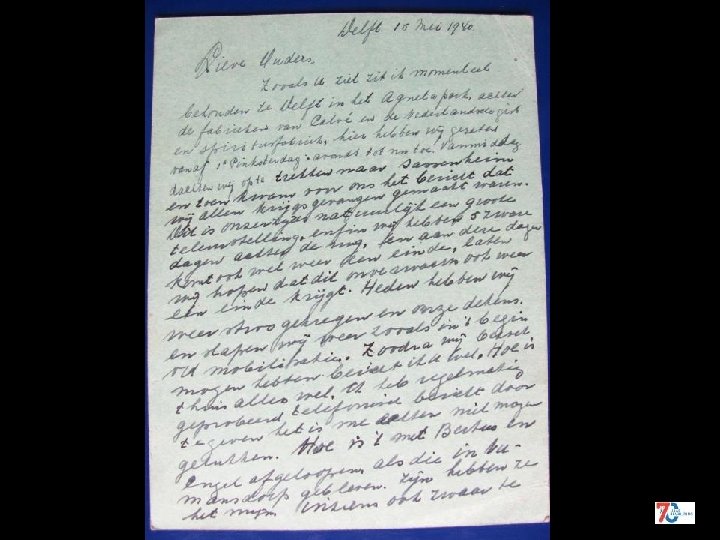 Delft 15 Mei 1940.
Lieve Ouders,
Zooals U ziet zit ik momenteel
behouden te Delft in het Agneta park, achter
de fabrieken van Calvé en de Nederlandsche gist
en spiritusfabriek, hier hebben wij gezeten
vanaf 1e Pinksterdag avond tot nu toe. Vanmiddag
dachten wij op te trekken naar Sassenheim
en toen kwam voor ons het bericht dat
wij allen krijgsgevangen gemaakt waren.
Dit is onzerzijds natuurlijk een groote
teleurstelling, enfin wij hebben 5 zware
dagen achter de rug. En aan deze dagen
komt ook wel weer een einde, laten
wij hopen dat dit onverwacht ook weer
een einde krijgt. Heden hebben wij
weer stroo gekregen en onze dekens.
en slapen wij weer zooals in 't begin
der mobilisatie. Zoodra wij
mogen hebben bericht ik U wel. Hoe is
't thuis alles wel. Ik heb regelmatig
geprobeerd telefonisch bericht door
te geven het is me echter niet mogen
gelukken. Hoe is 't met Bertus en
Engel afgeloopen, als die in
gebleven zijn hebben ze
het ook zwaar te
70